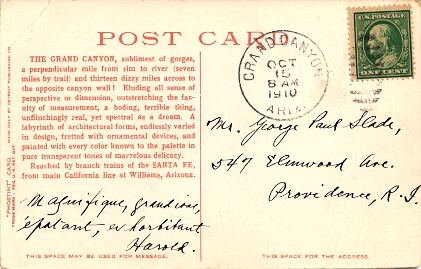 POST CARD
THE GRAND CANYON, sublimest of gorges,
a perpendicular mile from rim to river (seven
miles by trail) and thirteen dizzy miles across to
the opposite canyon wall! Eluding all sense of
perspective or dimension, outstretching the fac-
ulty of measurement, a boding, terrible thing,
unflinchingly real, yet spectral as a dream. A
labyrinth of architectural forms, endlessly varied
in design, fretted with ornamental devices, and
painted with every color known to the palette in
pure transparent tones of marvelous delicacy.
Reached by branch trains of the SANTA FE,
from main California line at Williams, Arizona.
Magnifique, grandiose,
epatant, exhorbitant
Harold.
THIS SPACE MAY BE USED FOR MESSAGE.
"PHOSTINT" CARD. MADE ONLY BY DETROIT PUBLISHING CO.
TRADE MARK REG. U.S. PAT. OFF.
GRAND CANYON
OCT
15
8 AM
1910
ARIZ.
U.S. POSTAGE
ONE CENT
Mr. George Paul Slade,
547 Elmwood Ave.
Providence, R.I.
THIS SPACE FOR THE ADDRESS.